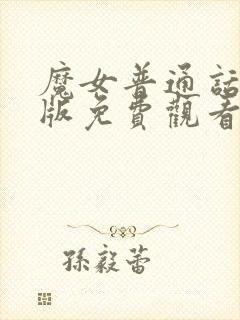 魔女普通話
版免費觀看
孫毅蕾